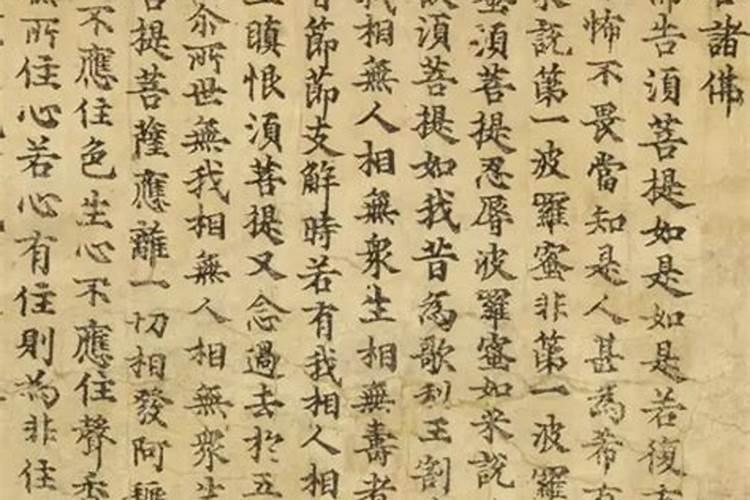 諸佛
佛告須菩提如是如是若復
怖不畏當知是人甚為希有
来說第一波羅蜜非第一波羅
須菩提忍辱波羅蜜如来說
須菩提如我昔為歌利王割
我相無人相無衆生相無壽者
節節支解時若有我相人相
瞋恨須菩提又念過去於五
尒所世無我相無人相無衆生
菩提菩薩應離一切相發阿
不應住色生心不應住聲香
所住心若心有住則為非住